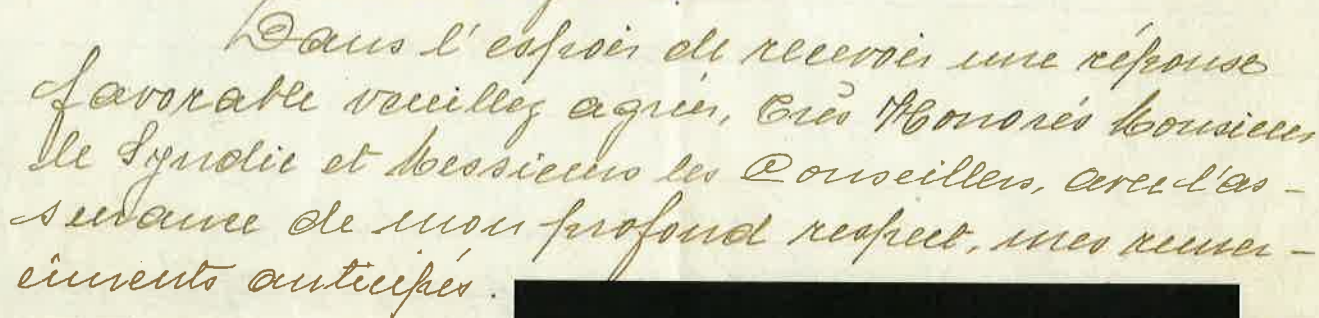 Dans l'espoir de recevoir une réponse
favorable veuillez agréer, Très Honorés Monsieur
le Syndic et Messieurs les Conseillers, avec l'as-
surance de mon profond respect, mes remer-
ciments anticipés.